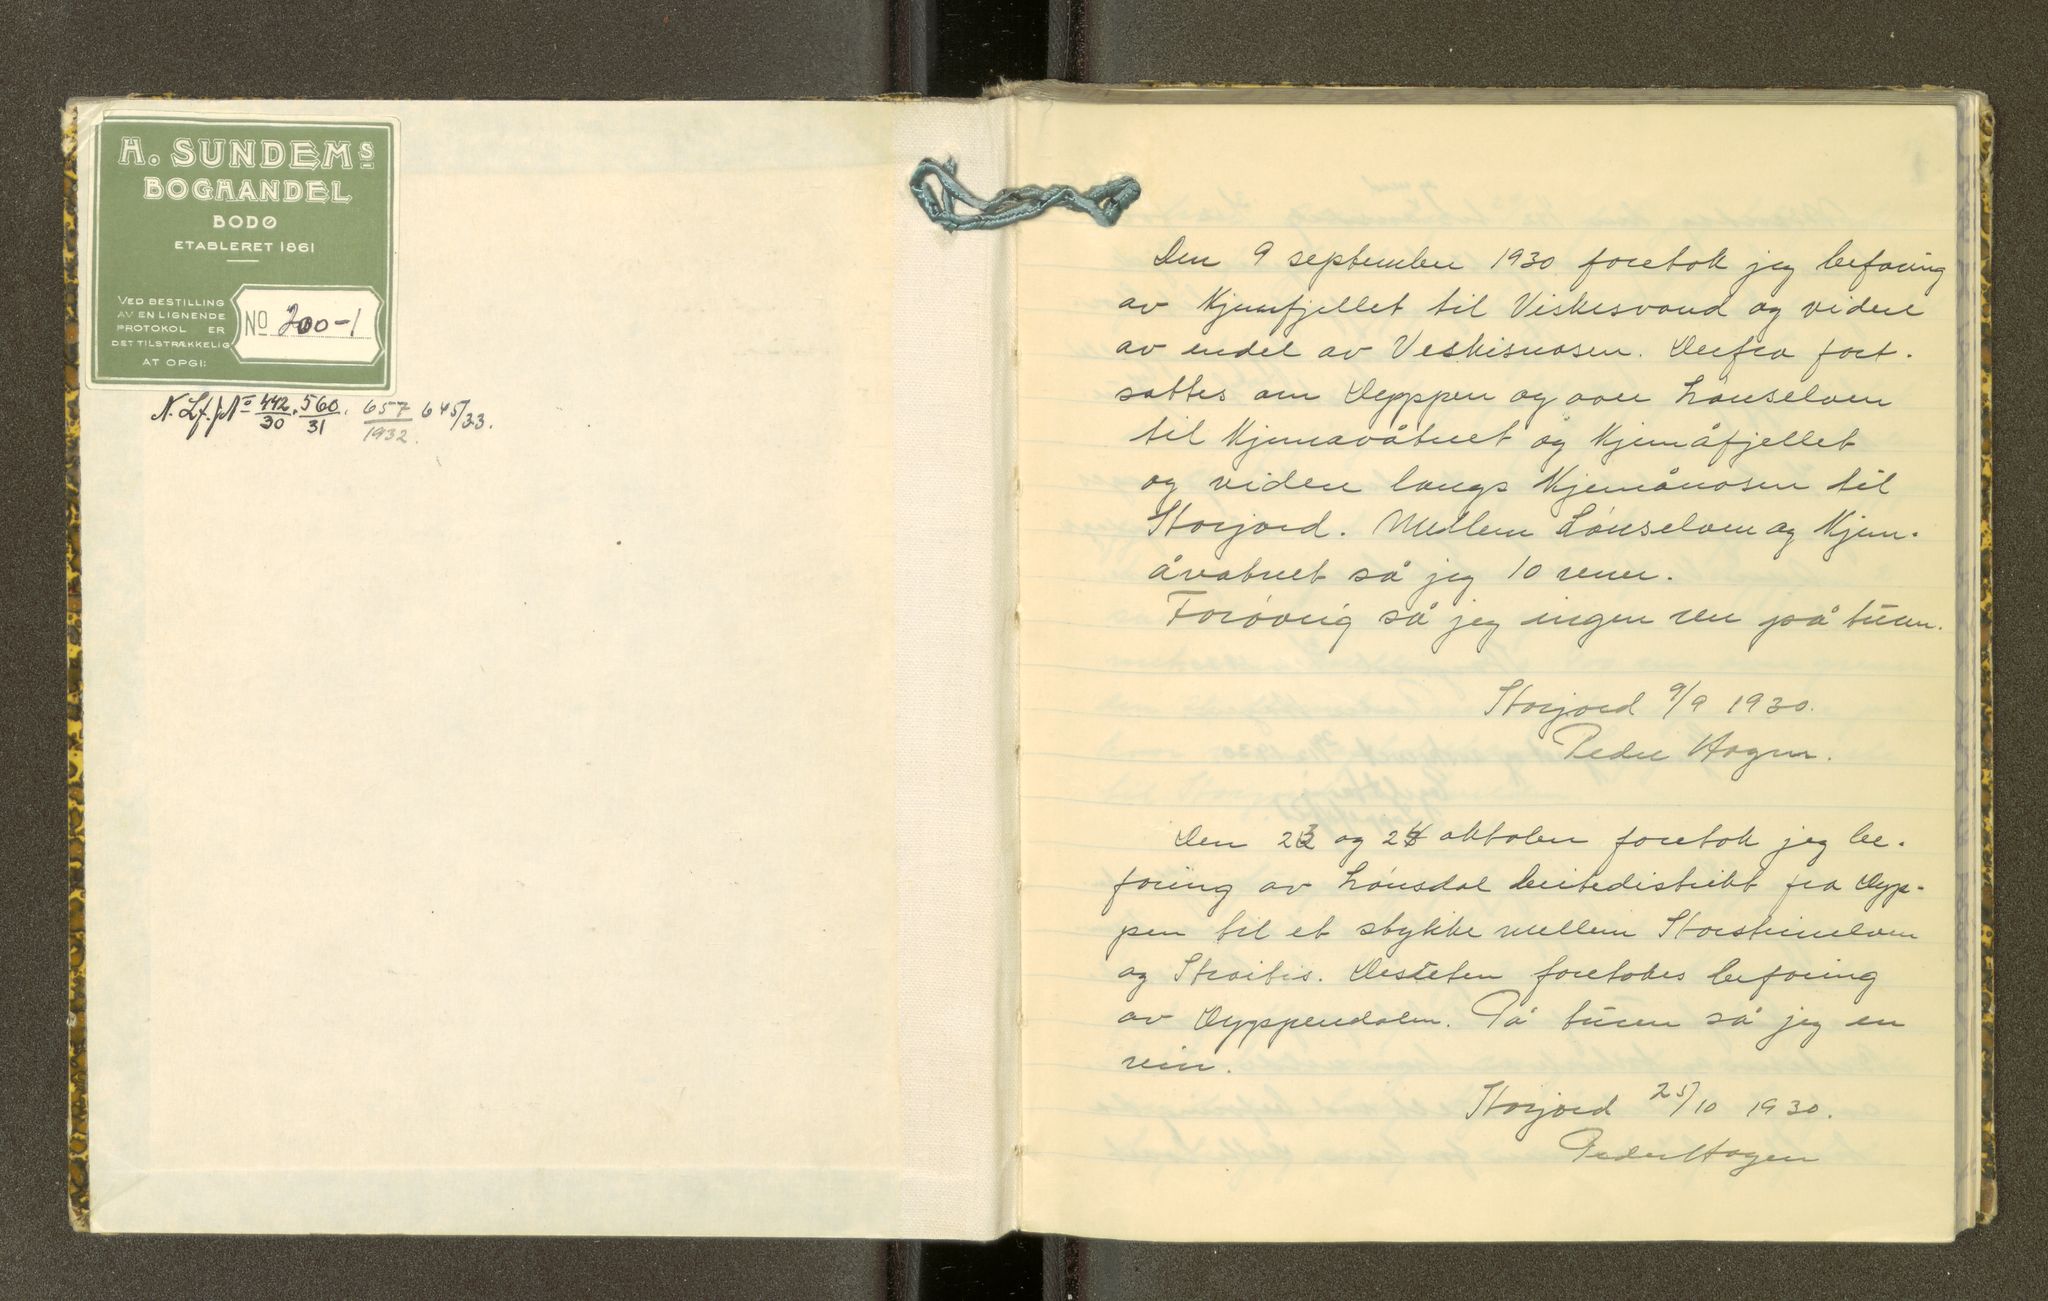 H. SUNDEMS
BOGHANDEL
BODØ
ETABLERET 1861
VED BESTILLING
AV EN LIGNENDE
PROTOKOL ER
DET TILSTRÆKKELIG
AT OPGI:
No 200-1
N. Lf. J No 442/30. 560/31. 657/1932. 645/33.
Den 9 september 1930 foretok jeg befaring
av Kjemfjellet til Viskesvand og videre
av endel av Veskisnasen. Derfra fort-
sattes om Dyppen og over Lønselven
til Kjemavåtnet og Kjemåfjellet
og videre langs Kjemånasen til
Storjord. Mellem Lønselven og Kjem-
åvatnet så jeg 10 rener.
Forøvrig så jeg ingen ren på turen.
Storjord 9/9 1930.
Peder Hagen.
Den 23 og 24 oktober foretok jeg be-
faring av Lønsdal beitedistrikt fra Dyp-
pen til et stykke mellem Storsteinelven
og Straitis. Desuten foretokes befaring
av Dyppendalen. På turen så jeg en
rein.
Storjord 25/10 1930.
Peder Hagen